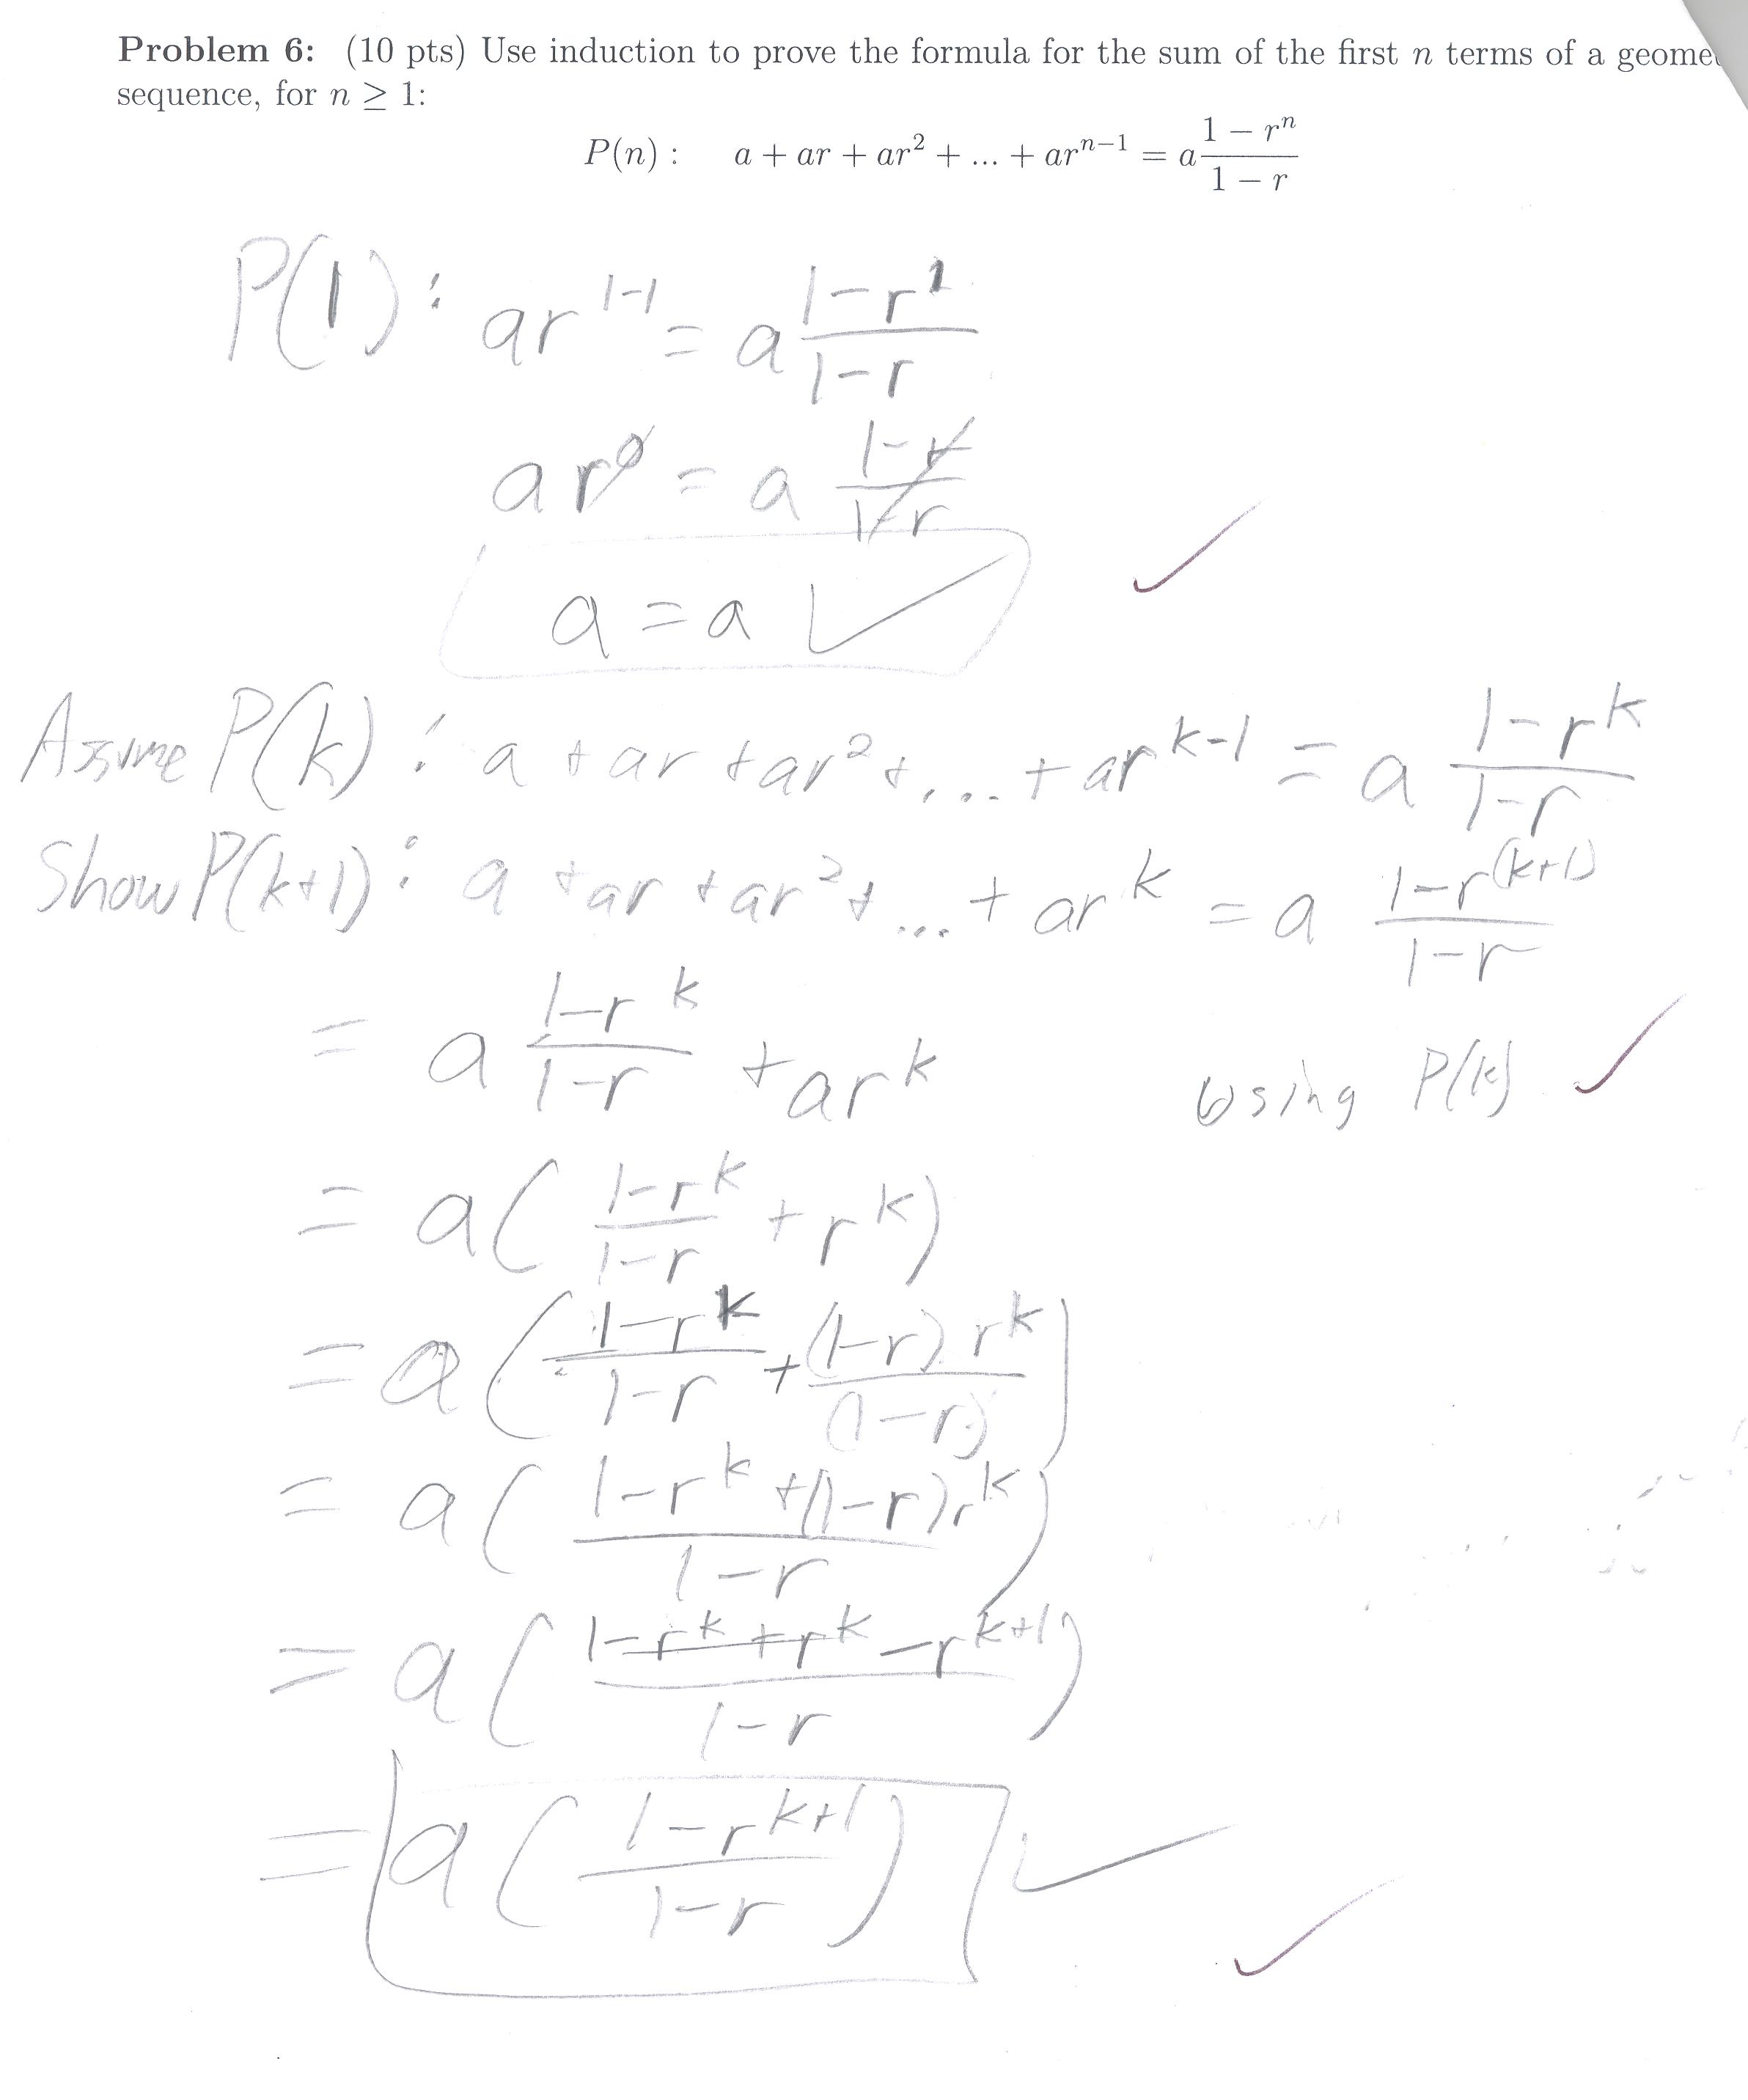 Problem 6: (10 pts) Use induction to prove the formula for the sum of the first n terms of a
sequence, for n ≥ 1:
P(n) : a + ar + ar² + ... + arⁿ⁻¹ = a (1 − rⁿ)/(1 − r)
P(1): ar^(1-1) = a (1-r^1)/(1-r)
ar^0 = a (1-r)/(1-r)
a = a ✓ ✓
Assume P(k): a + ar + ar² + ... + ar^(k-1) = a (1-r^k)/(1-r)
Show P(k+1): a + ar + ar² + ... + ar^k = a (1-r^(k+1))/(1-r)
= a (1-r^k)/(1-r) + ar^k Using P(k) ✓
= a( (1-r^k)/(1-r) + r^k )
= a( (1-r^k)/(1-r) + (1-r) r^k/(1-r) )
= a( (1-r^k+(1-r)r^k)/(1-r) )
= a( (1-r^k+r^k-r^(k+1))/(1-r) )
= a( (1-r^(k+1))/(1-r) ) ✓ ✓